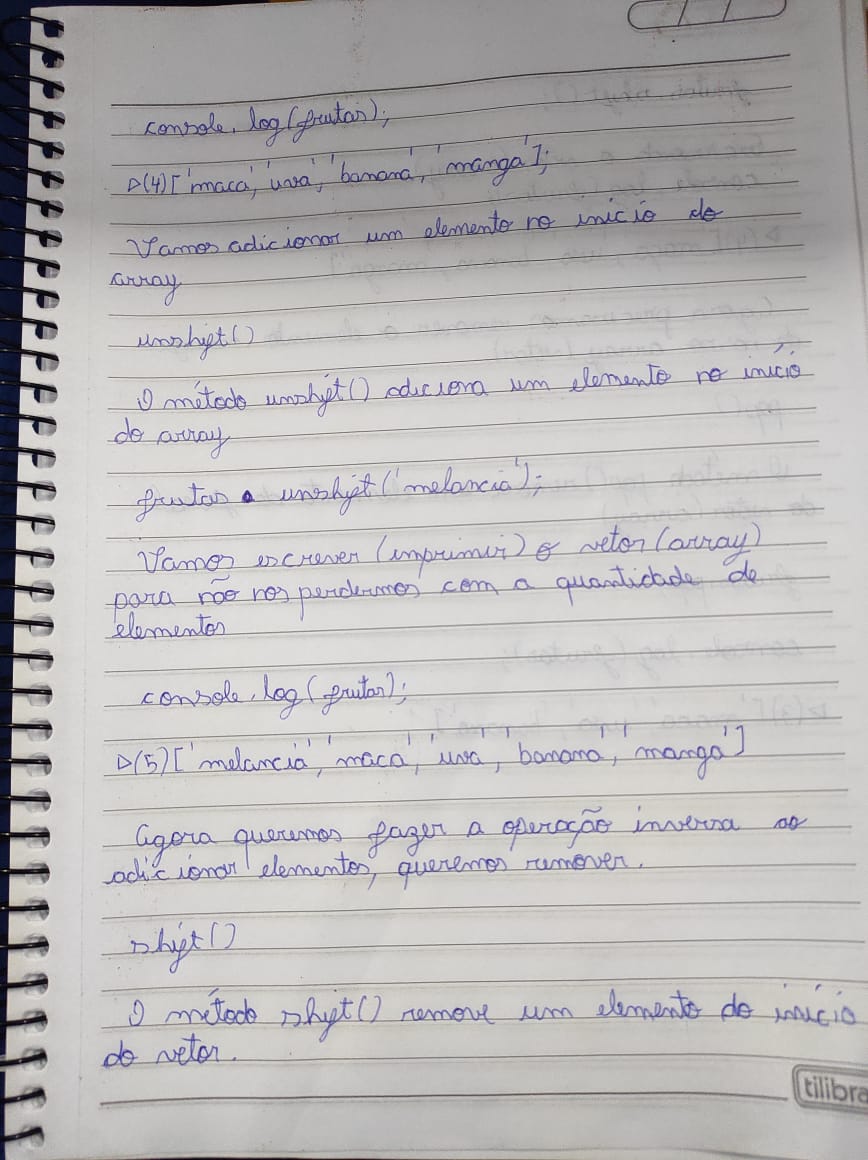 console.log(frutas);
▷(4)['maca', 'uva', 'banana', 'manga'];
Vamos adicionar um elemento no inicio do
array
unshift()
O método unshift() adiciona um elemento no início
do array
frutas.unshift('melancia');
Vamos escrever (imprimir) o vetor (array)
para não nos perdermos com a quantidade de
elementos
console.log(frutas);
▷(5)['melancia', 'maca', 'uva', 'banana', 'manga']
Agora queremos fazer a operação inversa ao
adicionar elementos, queremos remover.
shift()
O método shift() remove um elemento do início
do vetor.
tilibra